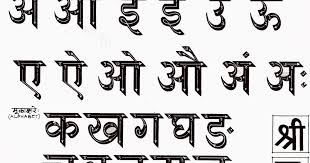 अ आ इ ई उ ऊ
ए ऐ ओ औ अं अः
(ALPHABET)
क ख ग घ ङ
श्री